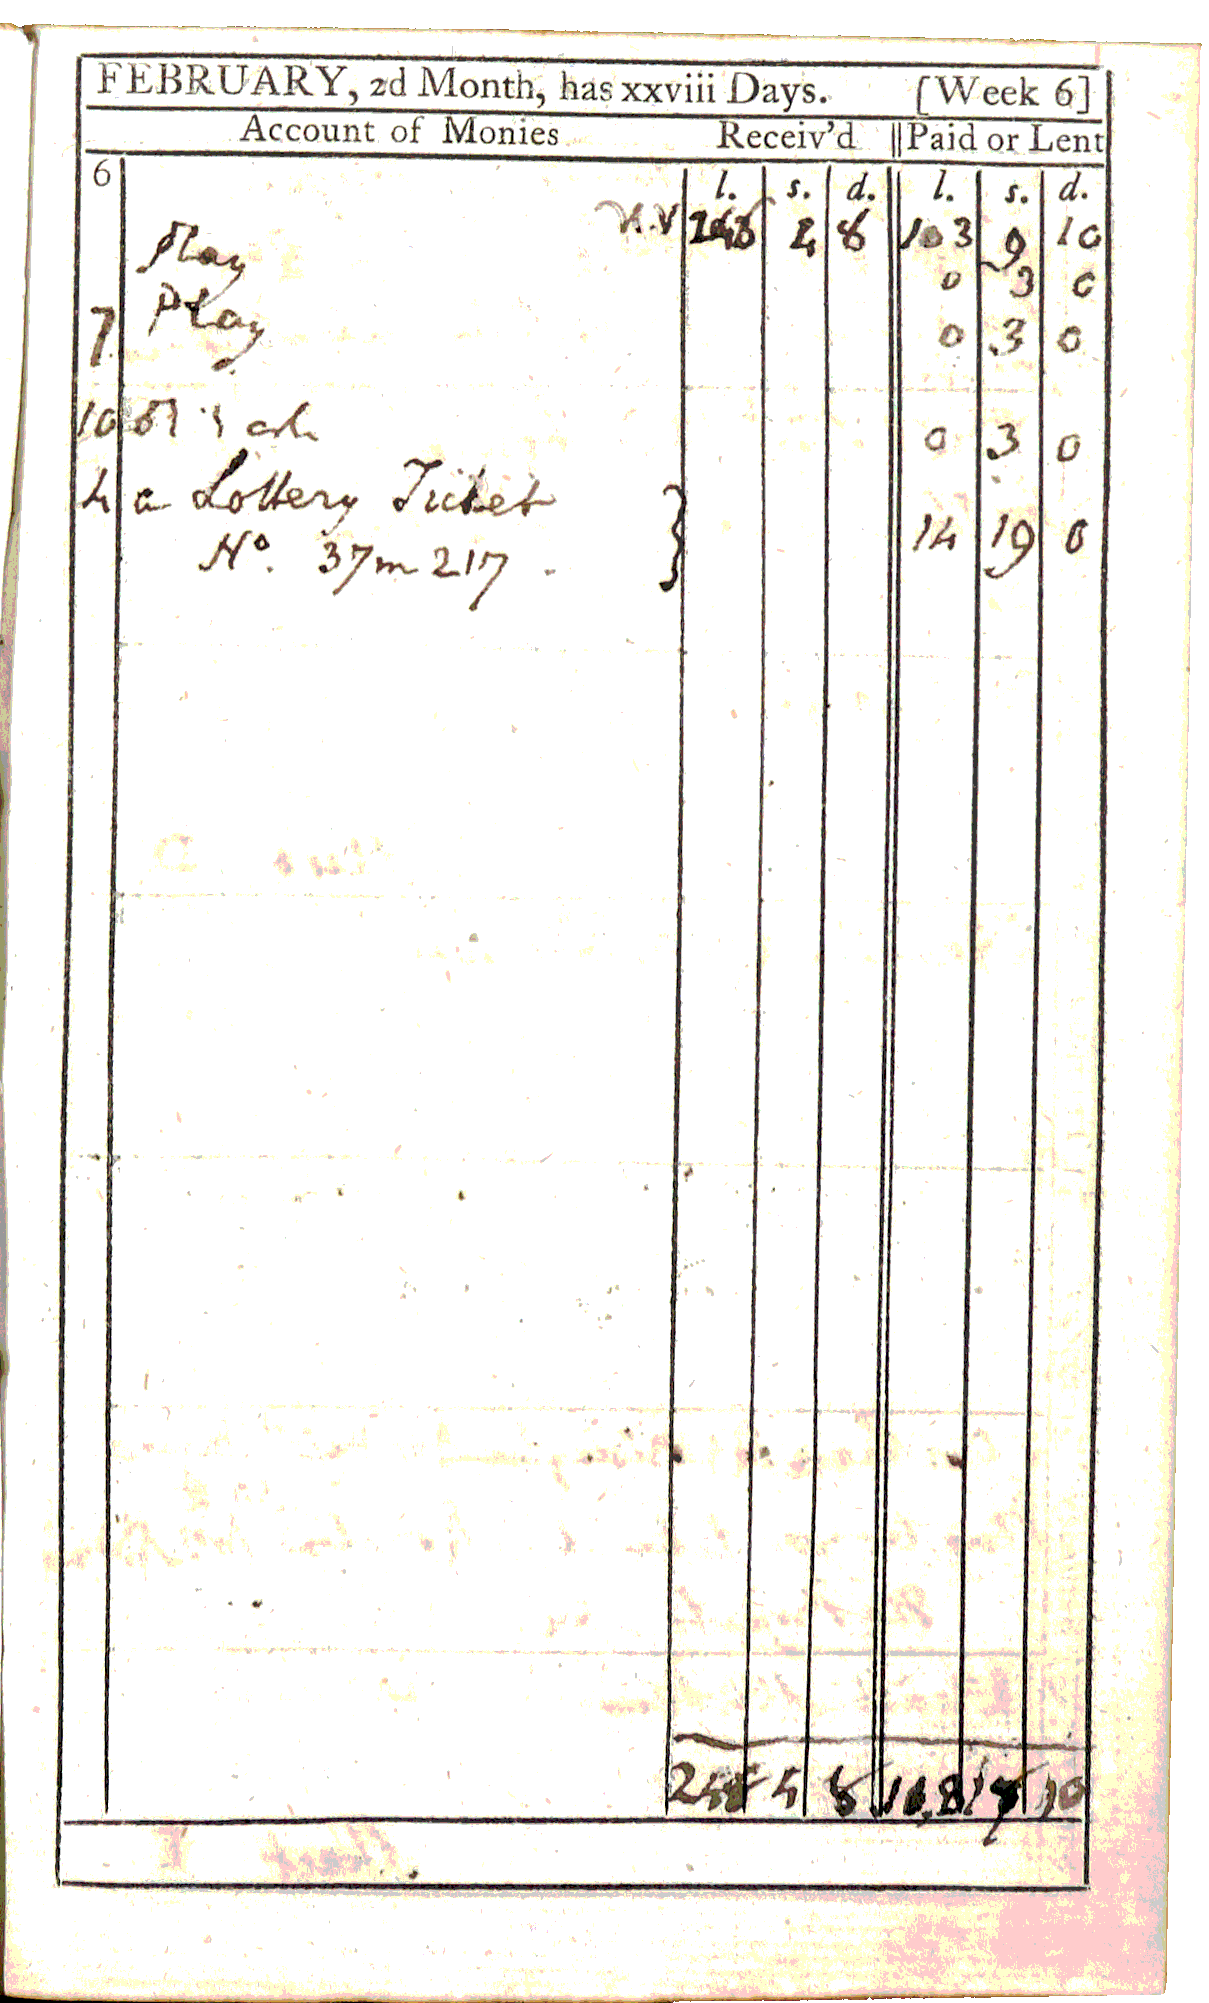 FEBRUARY, 2d Month, has xxviii Days. [Week 6]
Account of Monies Receiv'd Paid or Lent
6 l. s. d. l. s. d.
103 9 10
Play 0 3 0
7 Play 0 3 0
10 0 3 0
4 a Lottery Ticket
No. 37m217 - } 14 19 0
10